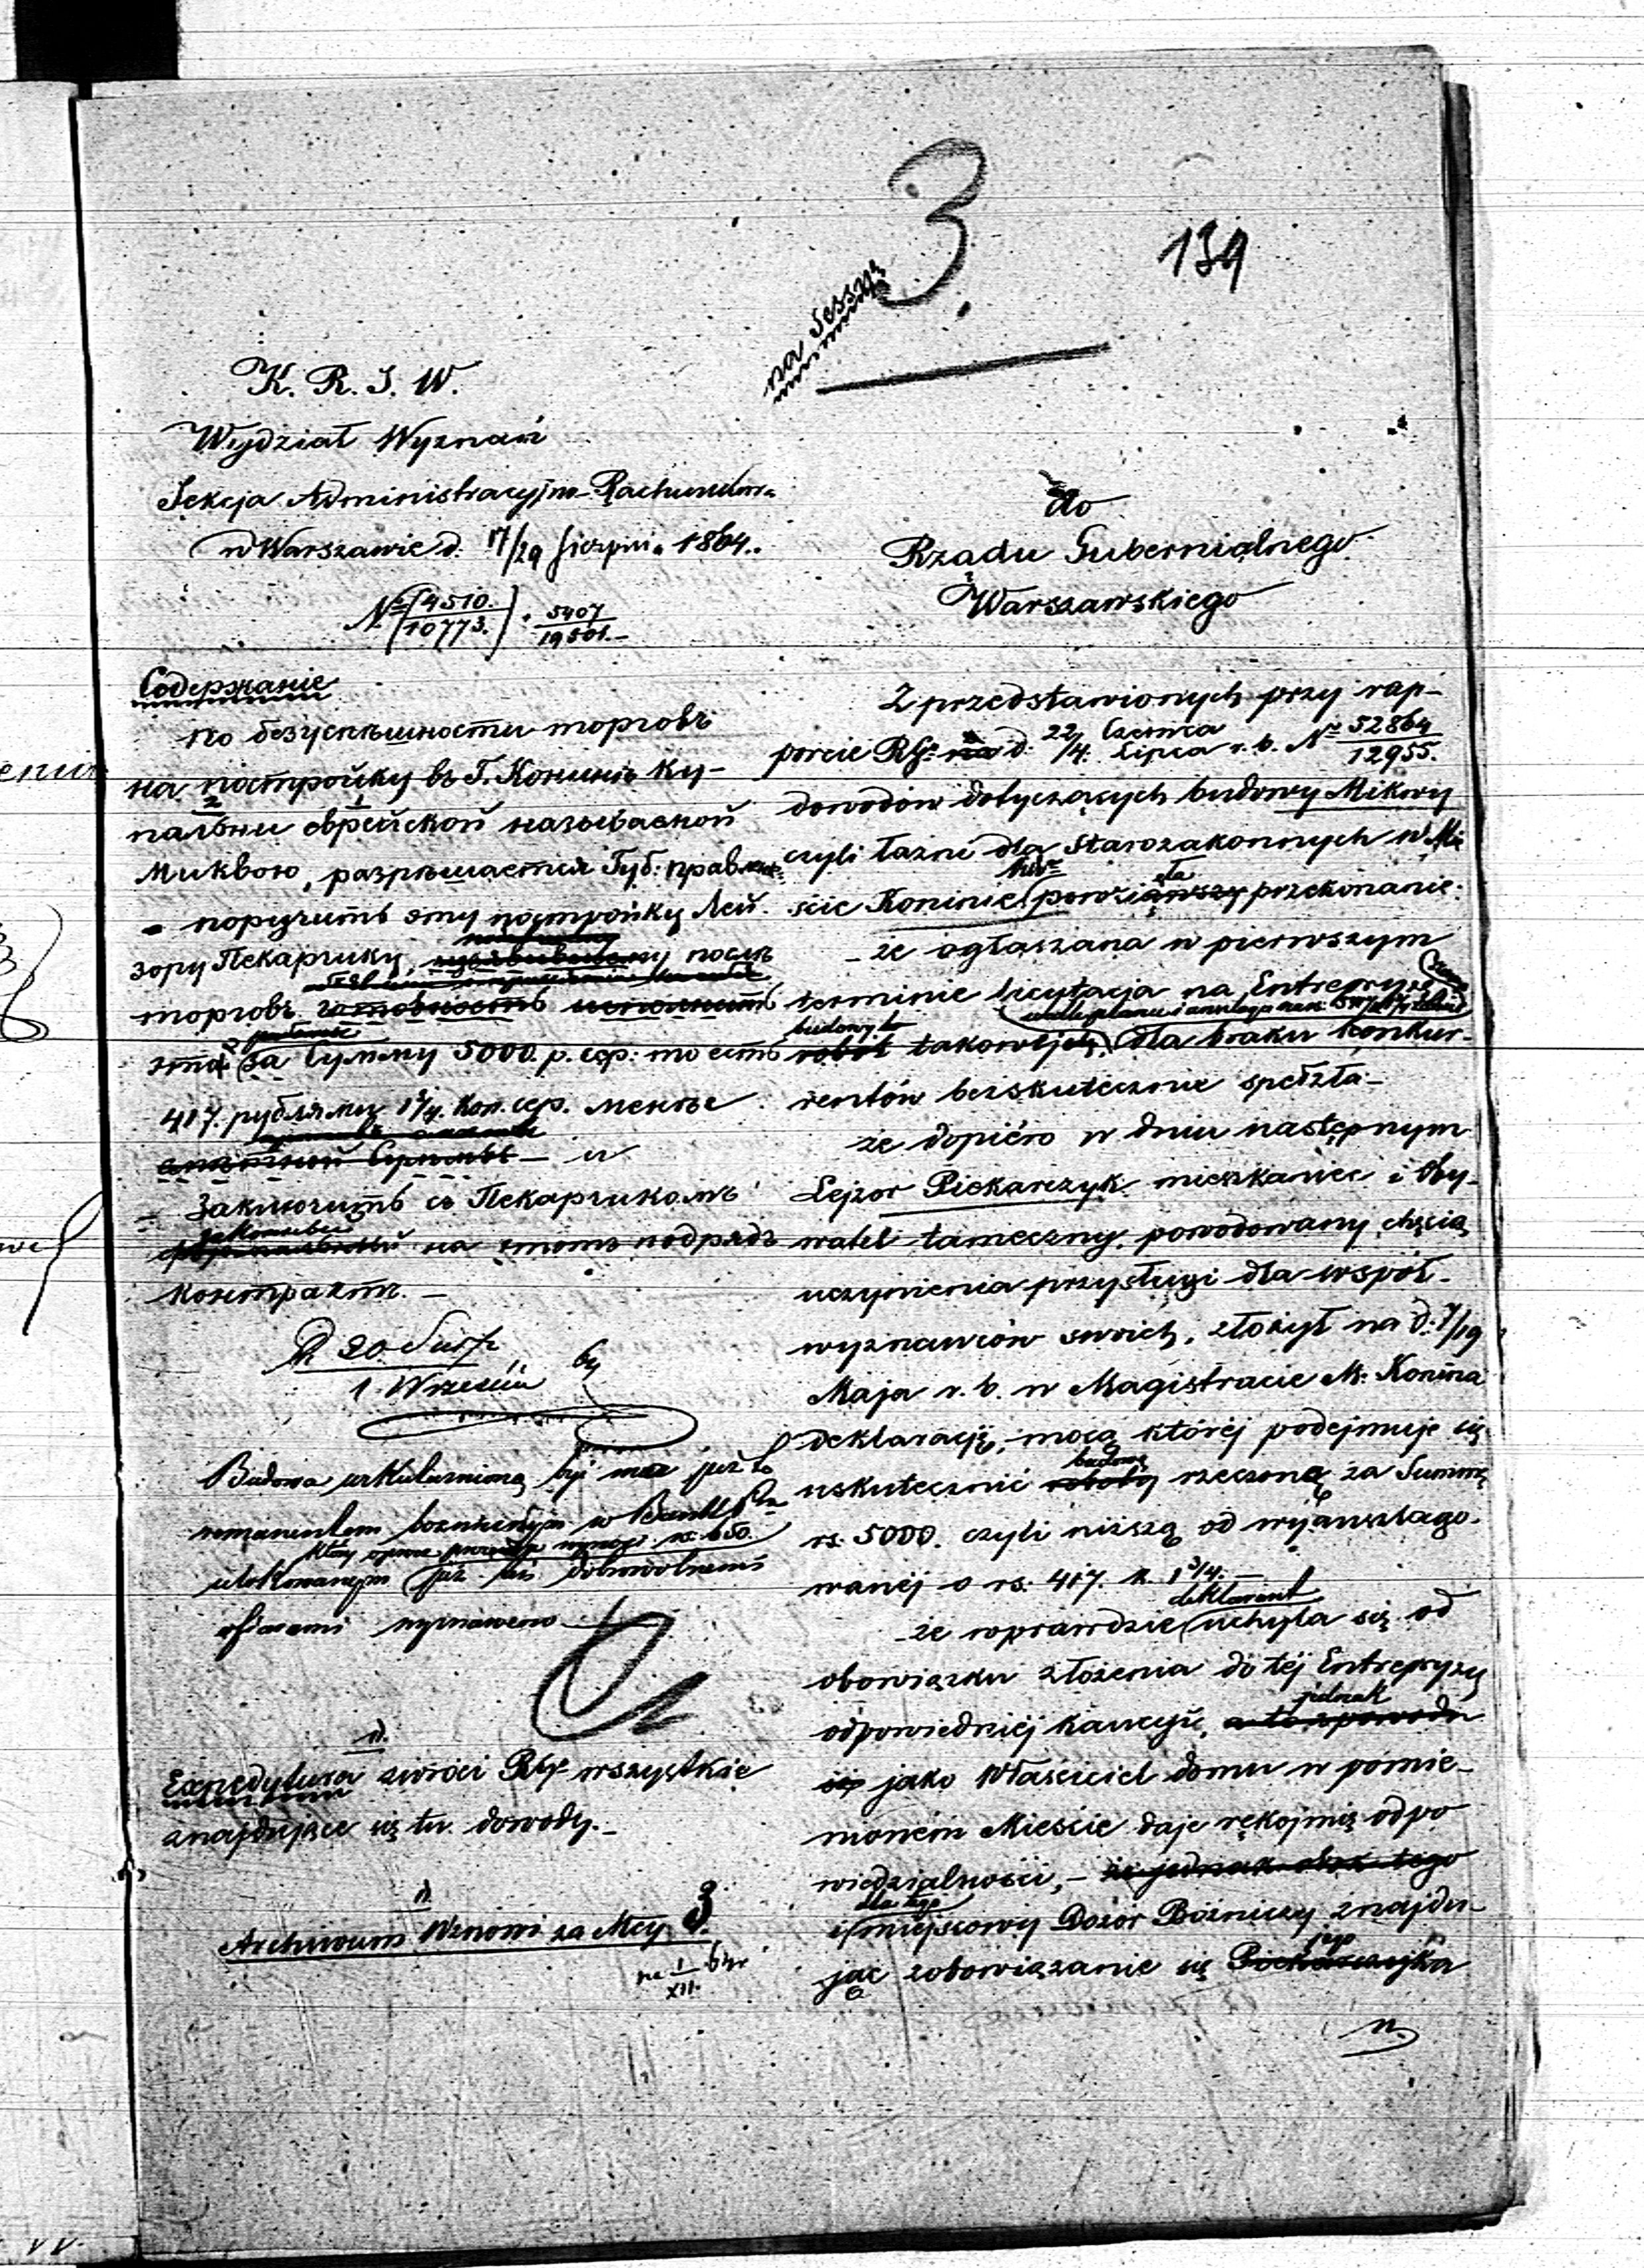 3.
139
na Sessyą
K. R. S. W.
Wydział Wyznań
Sekcja Administracyjno-Rachunkow.
w Warszawie d. 17/29 Sierpnia 1864.
№ (4510./10773.) 5407/19501.
Содержание
по безуспѣшности торговъ
на постройку въ Г. Конинѣ ку-
пальни еврейской называемой
Миквою, разрѣшается Губ: правлен:
- поручить эту постройку Лей.
зору Пекарчику, послѣ
торговъ готовность исполнить
за Сумму 5000. р. сер: то есть
417. рублями 1 3/4. коп. сер. менѣе
и
- Заключить съ Пекарчикомъ
на этотъ подрядъ
контрактъ. -
D. 20 Sierp.
1. Września
Budowa uskutecznioną być ma już to
remanentem bożniczym w Banku
który wynosi rs. 650.
ulokowanym już też dobrowolnemi
ofiarami wyznawców
n.
Expedytura zwróci RG wszystkie
znajdujące się tu dowody. -
n
Archiwum Wznowi za Mcy 3.
na 1/XII.
do
Rządu Gubernialnego
Warszawskiego
Z przedstawionych przy rap-
porcie RGo d. 22/4. Czerwca/Lipca r. b. № 52864/12955.
dowodów dotyczących budowy Mikwy
czyli łaźni dla Starozakonnych w Mie
ście Koninie przekonanie:
- że ogłaszana w pierwszym
terminie licytacja na Entrepryzę
budowy
robót takowej, dla braku konkur-
rentów bezskutecznie spełzła -
że dopiero w dniu następnym
Lejzor Piekarczyk mieszkaniec i Oby-
watel tameczny, powodowany chęcią
uczynienia przysługi dla współ-
wyznawców swoich, złożył na d. 7/19
Maja r. b. w Magistracie M: Konina
deklaracyję, mocą której podejmuje się
budowę
uskutecznić roboty rzeczoną za Summę
rs. 5000. czyli niższą od wyanszlago-
wanej o rs: 417. k. 1 3/4. -
deklarant
- że wprawdzie uchyla się od
obowiązku złożenia do tej Entrepryzy
jednak
odpowiedniej kaucyi, a to z powodu
iż jako Właściciel domu w pomie-
nionem Mieście daje rękojmią odpo
wiedzialności, - że jednak tego
dla tego
i miejscowy Dozór Bożniczy znajdu-
jego
jąc zobowiązanie się Piekarczyka
n.